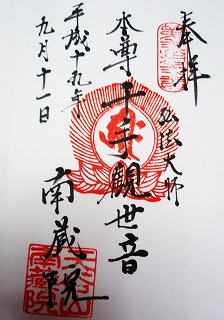 奉拝
弘法大師
本尊千手觀世音
南蔵院
平成十九年
九月十一日
南蔵院